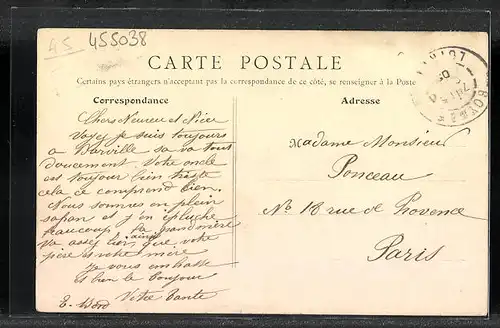 45 455038
CARTE POSTALE
Certains pays étrangers n'acceptant pas la correspondance de ce côté, se renseigner à la Poste
Correspondance
Adresse
Chers Neveu et Nièce
Voyez je suis toujours
a Darville sa va tout
doucement. Votre oncle
est toujour bien triste
cela ce comprend bien.
Nous sommes en plein
sapon et j'en épluche
beaucoup, la grandmère
va assez bien, ainsi que votre
père et votre mère
Je vous embrasse
et bien le bonjour
Votre tante
E.
Madame Monsieur
Ponceau
No 18 rue de Provence
Paris